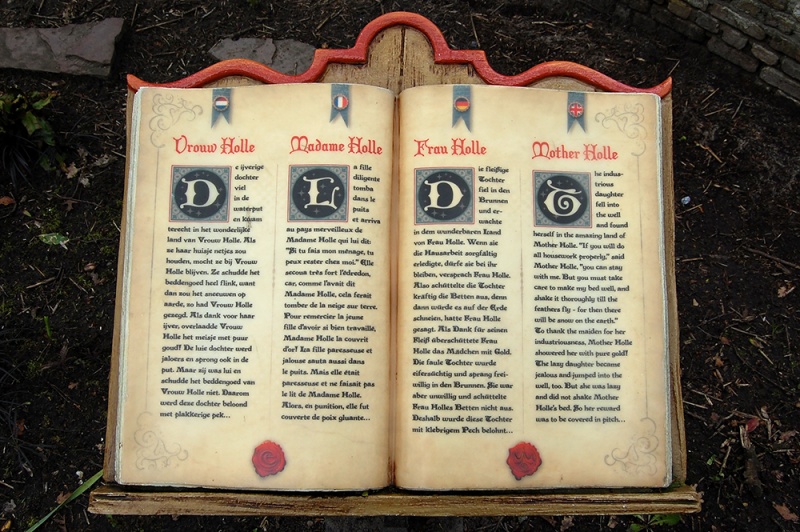 Vrouw Holle
De ijverige
dochter
viel
in de
waterput
en kwam
terecht in het wonderlijke
land van Vrouw Holle. Als
ze haar huisje netjes zou
houden, mocht ze bij Vrouw
Holle blijven. Ze schudde het
beddengoed heel flink, want
dan zou het sneeuwen op
aarde, zo had Vrouw Holle
gezegd. Als dank voor haar
ijver, overlaadde Vrouw
Holle het meisje met puur
goud! De luie dochter werd
jaloers en sprong ook in de
put. Maar zij was lui en
schudde het beddengoed van
Vrouw Holle niet. Daarom
werd deze dochter beloond
met plakkerige pek...
Madame Holle
La fille
diligente
tomba
dans le
puits
et arriva
au pays merveilleux de
Madame Holle qui lui dit:
"Si tu fais mon ménage, tu
peux rester chez moi." Elle
secoua très fort l'édredon,
car, comme l'avait dit
Madame Holle, cela ferait
tomber de la neige sur terre.
Pour remercier la jeune
fille d'avoir si bien travaillé,
Madame Holle la couvrit
d'or! La fille paresseuse et
jalouse sauta aussi dans
le puits. Mais elle était
paresseuse et ne faisait pas
le lit de Madame Holle.
Alors, en punition, elle fut
couverte de poix gluante...
Frau Holle
Die fleißige
Tochter
fiel in den
Brunnen
und er-
wachte
in dem wunderbaren Land
von Frau Holle. Wenn sie
die Hausarbeit sorgfältig
erledigte, dürfe sie bei ihr
bleiben, versprach Frau Holle.
Also schüttelte die Tochter
kräftig die Betten aus, denn
dann würde es auf der Erde
schneien, hatte Frau Holle
gesagt. Als Dank für seinen
Fleiß überschüttete Frau
Holle das Mädchen mit Gold.
Die faule Tochter wurde
eifersüchtig und sprang frei-
willig in den Brunnen. Sie war
aber unwillig und schüttelte
Frau Holles Betten nicht aus.
Deshalb wurde diese Tochter
mit klebrigem Pech belohnt...
Mother Holle
The indus-
trious
daughter
fell into
the well
and found
herself in the amazing land of
Mother Holle. "If you will do
all housework properly," said
Mother Holle, "you can stay
with me. But you must take
care to make my bed well, and
shake it thoroughly till the
feathers fly - for then there
will be snow on the earth."
To thank the maiden for her
industriousness, Mother Holle
showered her with pure gold!
The lazy daughter became
jealous and jumped into the
well, too. But she was lazy
and did not shake Mother
Holle's bed. So her reward
was to be covered in pitch...